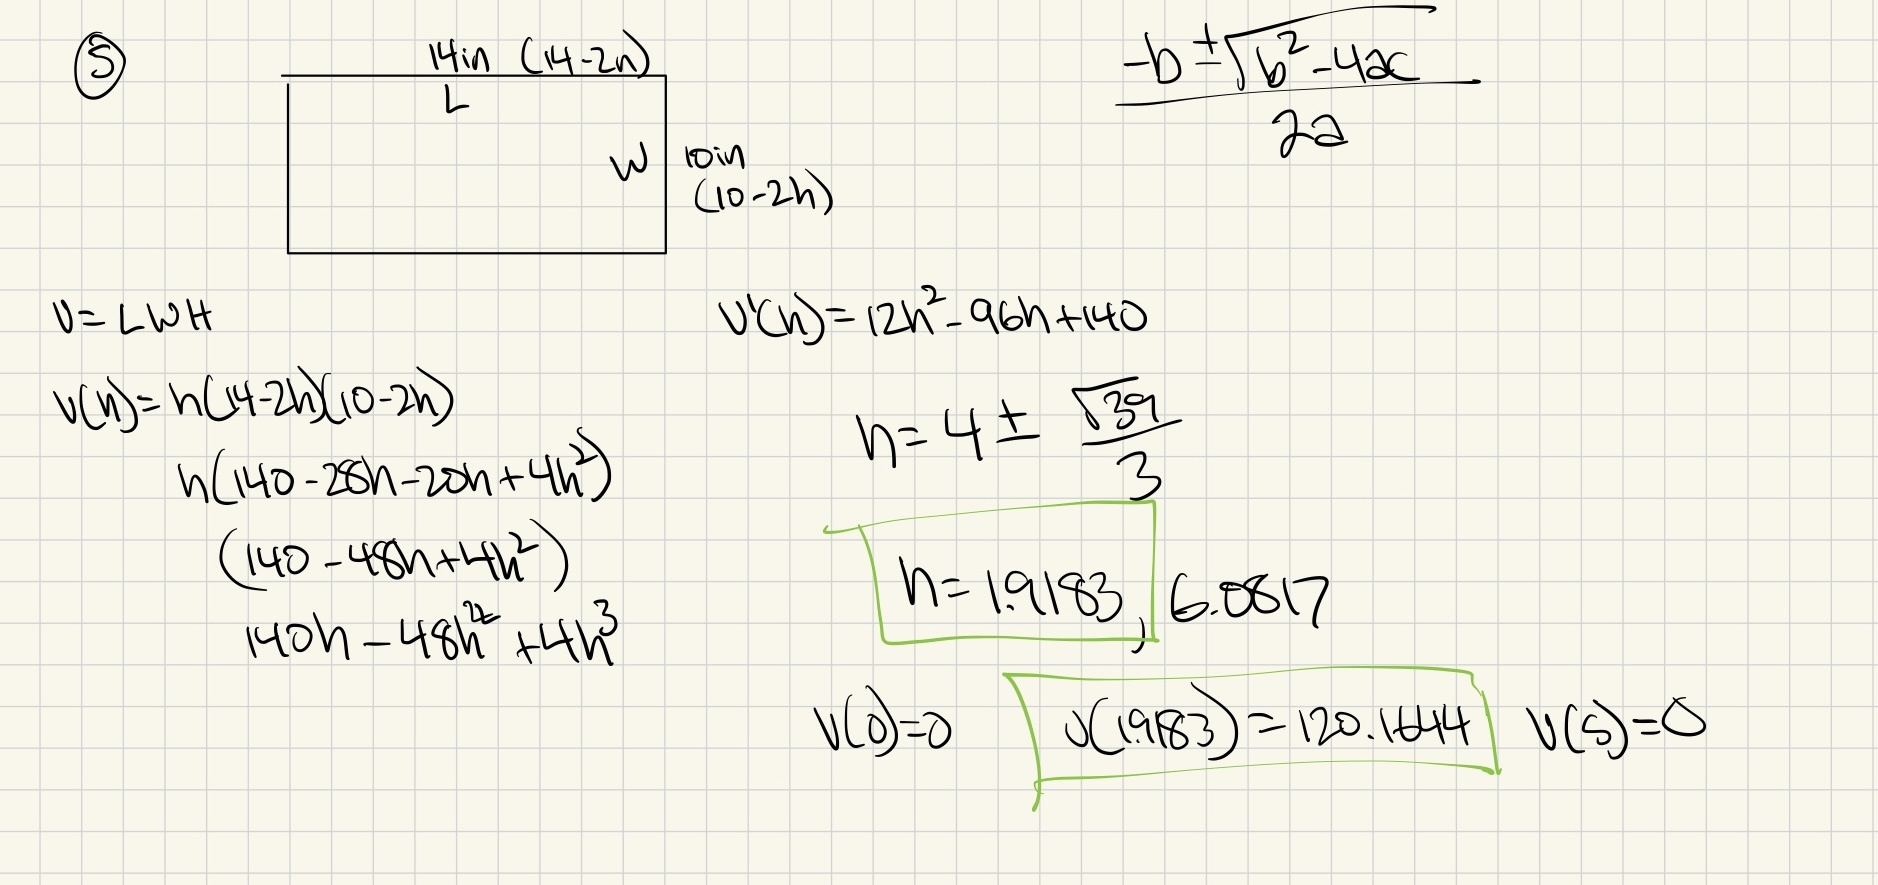 5
14in (14-2h)
L
W
10in
(10-2h)
-b ± √b² - 4ac
2a
V = LWH
V(h) = h(14-2h)(10-2h)
h(140 - 28h - 20h + 4h²)
(140 - 48h + 4h²)
140h - 48h² + 4h³
V'(h) = 12h² - 96h + 140
h = 4 ± √39
3
h = 1.9183, 6.0817
V(0) = 0
V(1.9183) = 120.1644
V(5) = 0